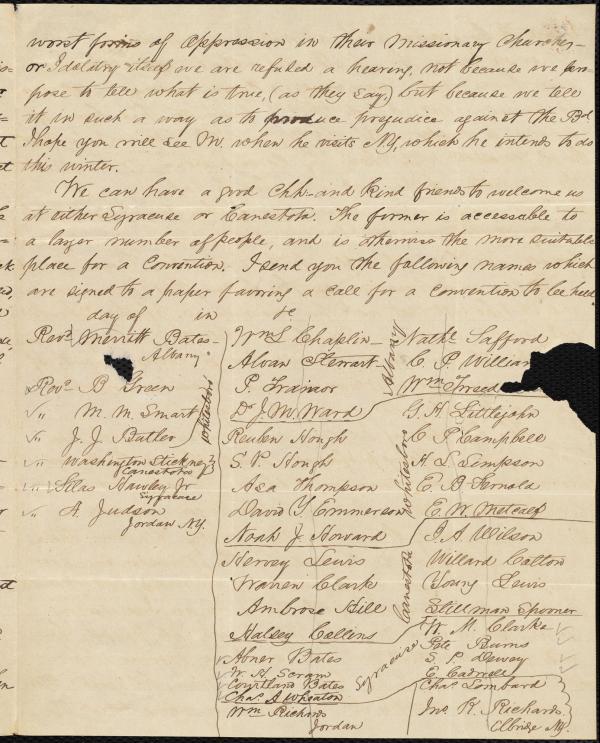 worst forms of oppression in their missionary churches—
or Idolatry itself we are refused a hearing, not because we pro-
pose to tell what is true, (as they say,) but because we tell
it in such a way as to produce prejudice against the Bd
I hope you will see M. when he visits NY, which he intends to do
this winter.
We can have a good chh— and kind friends to welcome us
at either Syracuse or Canestota. The former is accessable to
a larger number of people, and is otherwise the more suitable
place for a Convention. I send you the following names which
are signed to a paper favoring a call for a convention to be held
day of in &c
Revd Merritt Bates—
Albany
Revd B Green
" M. M. Smart
" J. J. Butler
Whitesboro
" Washington Stickney
Canestota
" Silas Hawley Jr
Syracuse
" A. Judson
Jordan NY.
Wm L Chaplin—
Alvan Stewart—
P. Trainor
Dr J. M Ward
Reuben Hough
S. P. Hough
Asa Thompson
David Y. Emmerson
Noah J. Howard
Hervey Lewis
Warren Clark
Ambrose Hill
Halsey Collins
Abner Bates
W. H. Scram
Courtland Bates
Chas A Wheaton
Wm Richards
Jordan
Albany
Whitesboro
Canestota
Syracuse
Nathl Safford
C. P. William
Wm
G. H. Littlejohn
C P Campbell
H. L. Simpson
E. B. Fernald
E. W. Metcalf
J. A. Wilson
Willard Cotton
Young Lewis
Stillman Spooner
W. M. Clarke
Pete Burns
S. P. Dewey
E. Cadwell
Chas Lombard
Jno R. Richards
Elbridge NY.